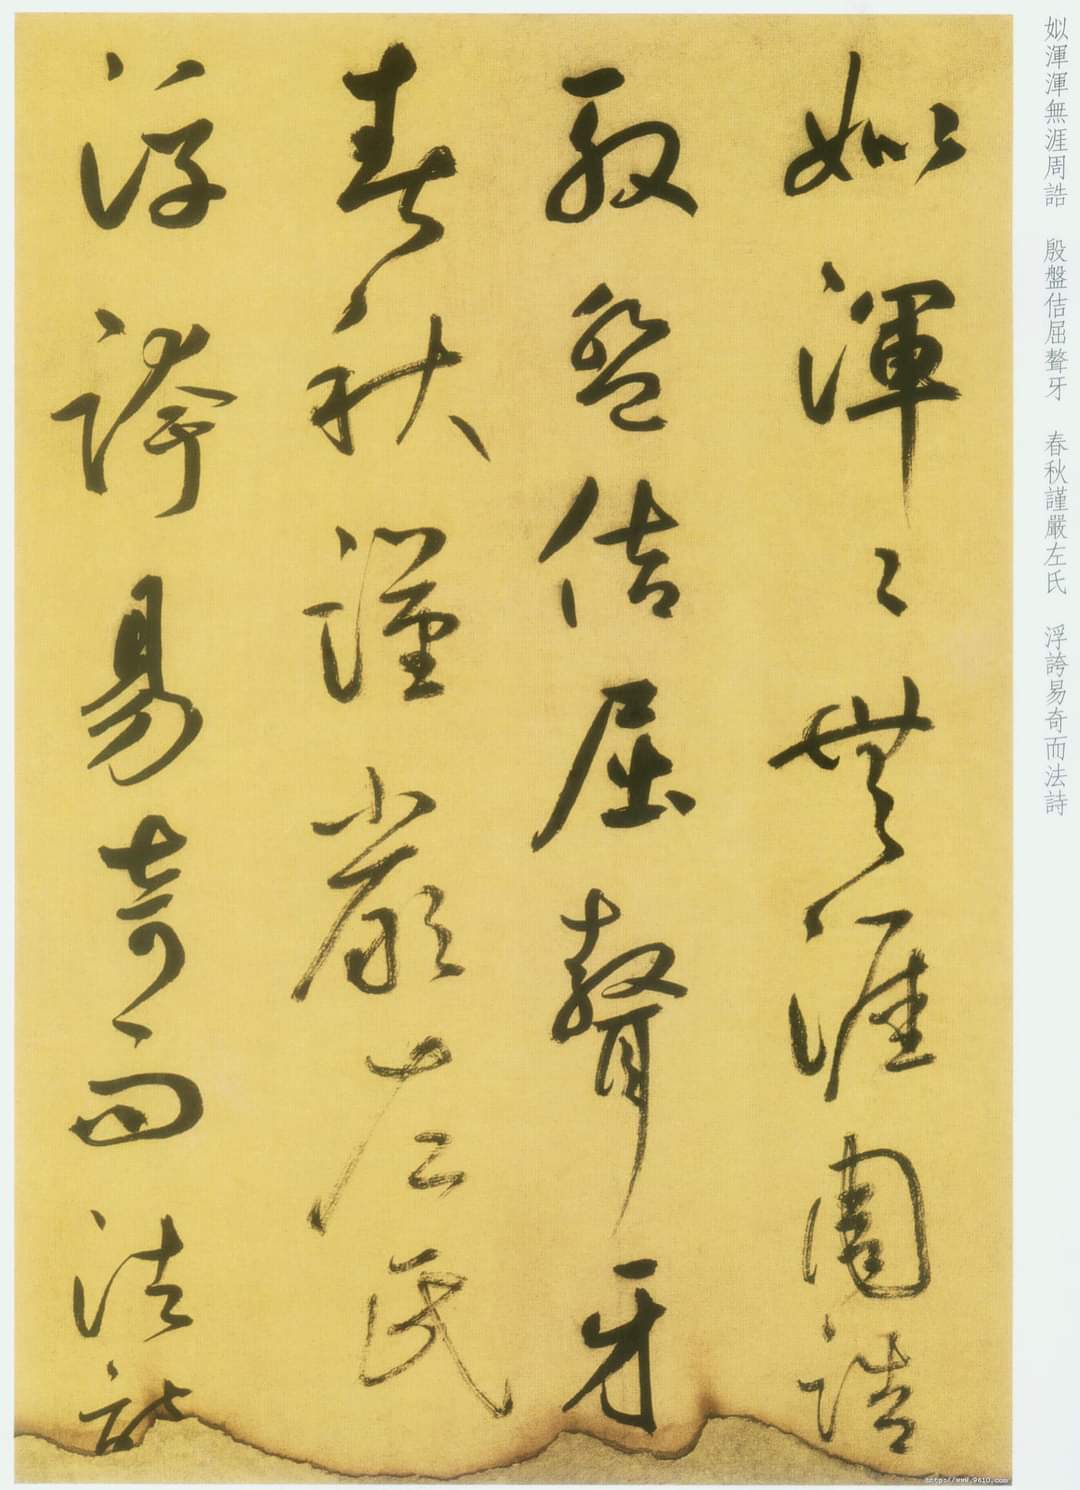 姒渾渾無涯周誥 殷盤佶屈聱牙 春秋謹嚴左氏 浮誇易奇而法詩
姒渾〻無涯周誥
殷盤佶屈聱牙
春秋謹嚴左氏
浮誇易奇而法詩
http://www.9610.com